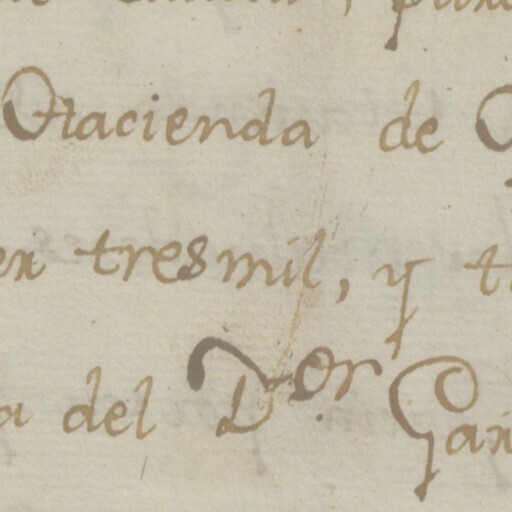 Hacienda de
en tres mil, y
a del D.or Gar